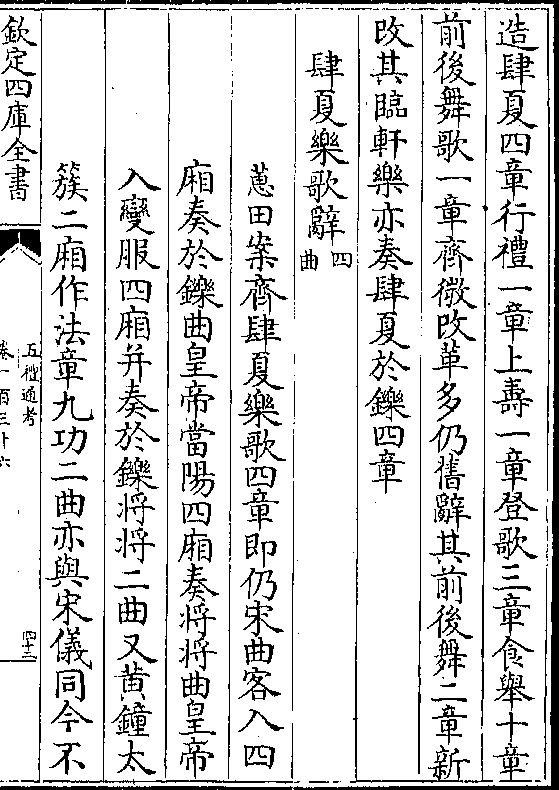 造肆夏四章行禮一章上壽一章登歌三章食舉十章
前後舞歌一章齊微改革多仍舊辭其前後舞二章新
改其臨軒樂亦奏肆夏於鑠四章
肆夏樂歌辭四曲
蕙田案齊肆夏樂歌四章即仍宋曲客入四
廂奏於鑠曲皇帝當陽四廂奏將將曲皇帝
入變服四廂并奏於鑠將將二曲又黄鐘太
簇二廂作法章九功二曲亦與宋儀同今不
欽定四庫全書
五禮通考
卷一百三十六
四十三